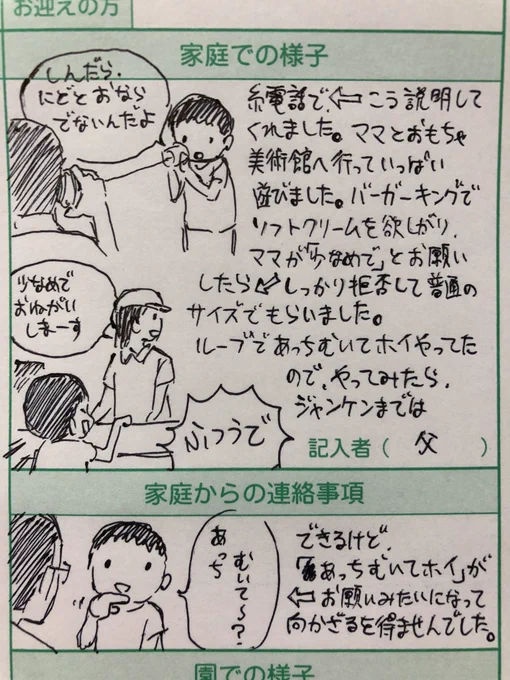 お迎えの方
家庭での様子
しんだら、
にどとおなら
でないんだよ
糸電話で⇐こう説明して
くれました。ママとおもちゃ
美術館へ行っていっぱい
遊びました。バーガーキングで
ソフトクリームを欲しがり、
ママが「少なめで」とお願い
したら⇐しっかり拒否して普通の
サイズでもらいました。
少なめで
おねがい
しまーす
ふつうで
ループであっちむいてホイやってた
ので、やってみたら、
ジャンケンまでは
記入者（ 父 ）
家庭からの連絡事項
あっち
むいて〜？
できるけど、
「あっちむいてホイ」が
⇐お願いみたいになって
向かざるを得ませんでした。
園での様子